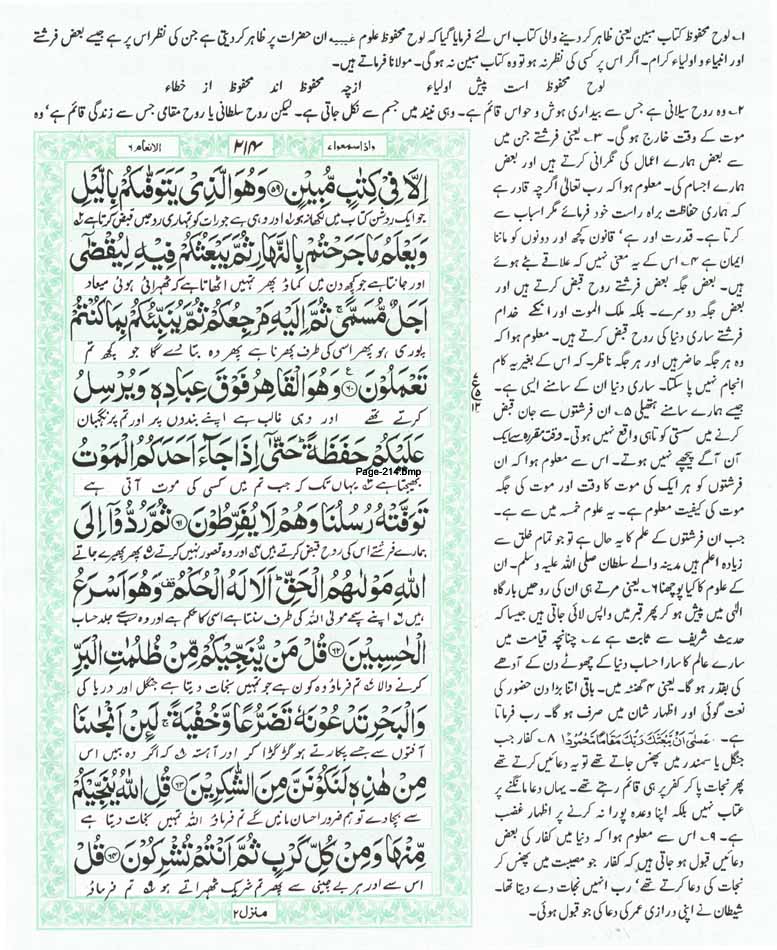 ۱۔ لوح محفوظ کتاب مبین یعنی ظاہر کر دینے والی کتاب اس لئے فرمایا گیا کہ لوح محفوظ علوم غیبیہ ان حضرات پر ظاہر کر دیتی ہے جن کی نظر اس پر ہے جیسے بعض فرشتے
اور انبیاء و اولیاء کرام۔ اگر اس پر کسی کی نظر نہ ہو تو وہ کتاب مبین نہ ہو گی۔ مولانا فرماتے ہیں۔
لوح محفوظ است پیش اولیاء ازچہ محفوظ اند محفوظ از خطاء
۲۔ وہ روح سیلانی ہے جس سے بیداری ہوش و حواس قائم ہے۔ وہی نیند میں جسم سے نکل جاتی ہے۔ لیکن روح سلطانی یا روح مقامی جس سے زندگی قائم ہے' وہ
موت کے وقت خارج ہو گی۔ ۳۔ یعنی فرشتے جن میں
سے بعض ہمارے اعمال کی نگرانی کرتے ہیں اور بعض
ہمارے اجسام کی۔ معلوم ہوا کہ رب تعالیٰ اگرچہ قادر ہے
کہ ہماری حفاظت براہ راست خود فرمائے مگر اسباب سے
کرتا ہے۔ قدرت اور ہے' قانون کچھ اور دونوں کو ماننا
ایمان ہے ۴۔ اس کے یہ معنی نہیں کہ علاقے بٹے ہوئے
ہیں۔ بعض جگہ بعض فرشتے روح قبض کرتے ہیں اور
بعض جگہ دوسرے۔ بلکہ ملک الموت اور انکے خدام
فرشتے ساری دنیا کی روح قبض کرتے ہیں۔ معلوم ہوا کہ
وہ ہر جگہ حاضر ہیں اور ہر جگہ ناظر۔ کہ اس کے بغیر یہ کام
انجام نہیں پا سکتا۔ ساری دنیا ان کے سامنے ایسی ہے۔
جیسے ہمارے سامنے ہتھیلی ۵۔ ان فرشتوں سے جان قبض
کرنے میں سستی کوتاہی واقع نہیں ہوتی۔ وقت مقررہ سے ایک
آن آگے پیچھے نہیں ہوتے۔ اس سے معلوم ہوا کہ ان
فرشتوں کو ہر ایک کی موت کا وقت اور موت کی جگہ
موت کی کیفیت معلوم ہے۔ یہ علوم خمسہ میں سے ہے۔
جب ان فرشتوں کے علم کا یہ حال ہے تو جو تمام خلق سے
زیادہ اعلم ہیں مدینہ والے سلطان صلی اللہ علیہ وسلم۔ ان
کے علوم کا کیا پوچھنا ۶۔ یعنی مرتے ہی ان کی روحیں بارگاہ
الٰہی میں پیش ہو کر پھر قبر میں واپس لائی جاتی ہیں جیسا کہ
حدیث شریف سے ثابت ہے ۷۔ چنانچہ قیامت میں
سارے عالم کا سارا حساب دنیا کے چھوٹے دن کے آدھے
کی بقدر ہو گا۔ یعنی ۴ گھنٹہ میں۔ باقی اتنا بڑا دن حضور کی
نعت گوئی اور اظہار شان میں صرف ہو گا۔ رب فرماتا
ہے۔ عَسٰٓى اَنْ يَّبْعَثَكَ رَبُّكَ مَقَامًا مَّحْمُوْدًا ۸۔ کفار جب
جنگل یا سمندر میں پھنس جاتے تھے تو یہ دعائیں کرتے تھے
پھر نجات پا کر کفر پر ہی قائم رہتے تھے۔ یہاں دعا مانگنے پر
عتاب نہیں بلکہ اپنا وعدہ پورا نہ کرنے پر اظہار غضب
ہے۔ ۹۔ اس سے معلوم ہوا کہ دنیا میں کفار کی بعض
دعائیں قبول ہو جاتی ہیں کہ کفار جو مصیبت میں پھنس کر
نجات کی دعا کرتے تھے' رب انہیں نجات دے دیتا تھا۔
شیطان نے اپنی درازی عمر کی دعا کی جو قبول ہوئی۔
واذا سمعوا ۷ ۲۱۴ الانعام ۶
اِلَّا فِيْ كِتٰبٍ مُّبِيْنٍ ﴿۵۹﴾ وَهُوَ الَّذِيْ يَتَوَفّٰىكُمْ بِالَّيْلِ
جو ایک روشن کتاب میں لکھا نہ ہو اور وہی ہے جو رات کو تمہاری روحیں قبض کرتا ہے
وَيَعْلَمُ مَا جَرَحْتُمْ بِالنَّهَارِ ثُمَّ يَبْعَثُكُمْ فِيْهِ لِيُقْضٰٓى
اور جانتا ہے جو کچھ دن میں کماؤ پھر تمہیں اٹھاتا ہے کہ ٹھہرائی ہوئی میعاد
اَجَلٌ مُّسَمًّى ۚ ثُمَّ اِلَيْهِ مَرْجِعُكُمْ ثُمَّ يُنَبِّئُكُمْ بِمَا كُنْتُمْ
پوری ہو پھر اسی کی طرف پھرنا ہے پھر وہ بتا دے گا جو کچھ تم
تَعْمَلُوْنَ ﴿۶۰﴾ وَهُوَ الْقَاهِرُ فَوْقَ عِبَادِهٖ وَيُرْسِلُ
کرتے تھے اور وہی غالب ہے اپنے بندوں پر اور تم پر نگہبان
عَلَيْكُمْ حَفَظَةً ؕ حَتّٰٓى اِذَا جَآءَ اَحَدَكُمُ الْمَوْتُ
Page-214.bmp
بھیجتا ہے یہاں تک کہ جب تم میں کسی کی موت آتی ہے
تَوَفَّتْهُ رُسُلُنَا وَهُمْ لَا يُفَرِّطُوْنَ ﴿۶۱﴾ ثُمَّ رُدُّوْٓا اِلَى
ہمارے فرشتے اس کی روح قبض کرتے ہیں اور وہ قصور نہیں کرتے پھر پھیرے جاتے
اللّٰهِ مَوْلٰىهُمُ الْحَقِّ ؕ اَلَا لَهُ الْحُكْمُ وَهُوَ اَسْرَعُ
ہیں اپنے سچے مولیٰ اللہ کی طرف سنتا ہے اسی کا حکم ہے اور وہ سب سے جلد حساب
الْحٰسِبِيْنَ ﴿۶۲﴾ قُلْ مَنْ يُّنَجِّيْكُمْ مِّنْ ظُلُمٰتِ الْبَرِّ
کرنے والا تم فرماؤ وہ کون ہے جو تمہیں نجات دیتا ہے جنگل اور دریا کی
وَالْبَحْرِ تَدْعُوْنَهٗ تَضَرُّعًا وَّخُفْيَةً ۚ لَئِنْ اَنْجٰىنَا
آفتوں سے جسے پکارتے ہو گڑگڑا کر اور آہستہ کہ اگر وہ ہمیں اس
مِنْ هٰذِهٖ لَنَكُوْنَنَّ مِنَ الشّٰكِرِيْنَ ﴿۶۳﴾ قُلِ اللّٰهُ يُنَجِّيْكُمْ
سے بچاوے تو ہم ضرور احسان مانیں گے تم فرماؤ اللہ تمہیں نجات دیتا ہے
مِّنْهَا وَمِنْ كُلِّ كَرْبٍ ثُمَّ اَنْتُمْ تُشْرِكُوْنَ ﴿۶۴﴾ قُلْ
اس سے اور ہر بے چینی سے پھر تم شریک ٹھہراتے ہو تم فرماؤ
منزل ۲